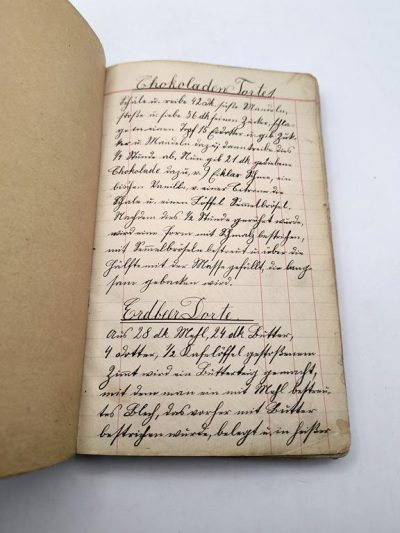 Chokoladen Torte
Schäle u. reibe 42 dk süße Mandeln,
stoße u. siebe 36 dk feinen Zucker, schla-
ge in einen Topf 15 Eidotter u. gib Zuk-
ker u. Mandeln dazu, dann treibe das
½ Stunde ab. Nun gib 21 dk geriebene
Chokolade dazu, v. 7 Eiklar Schnee, ein
bischen Vanille, v. einer Citrone die
Schale u. einen Löffel Semmelbrösel.
Nachdem dies ½ Stunde gerührt wurde,
wird eine Form mit Schmalz bestrichen,
mit Semmelbröseln bestreut u. über die
Hälfte mit der Masse gefüllt, die lang-
sam gebacken wird.
Erdbeer Torte
Aus 28 dk Mehl, 24 dk Butter,
4 Dotter, ½ Kafelöffel gestoßenem
Zimmt wird ein Butterteig gemacht,
mit dem man ein mit Mehl bestreu-
tes Blech, das vorher mit Butter
bestrichen wurde, belegt u. in heißer